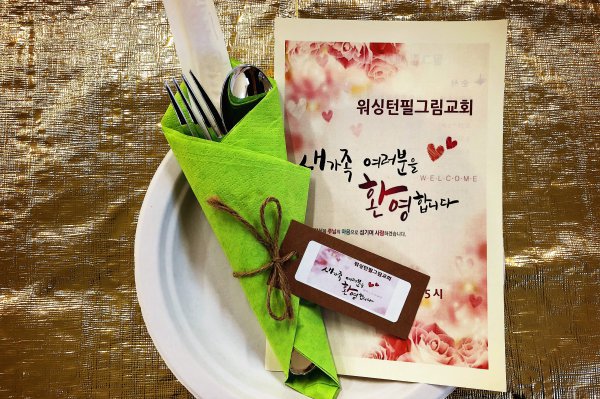 워싱턴필그림교회
새가족 여러분을
W·E·L·C·O·M·E
환영합니다
주님의 마음으로 섬기며 사랑하겠습니다.
5시
워싱턴필그림교회
새가족 여러분을
환영합니다